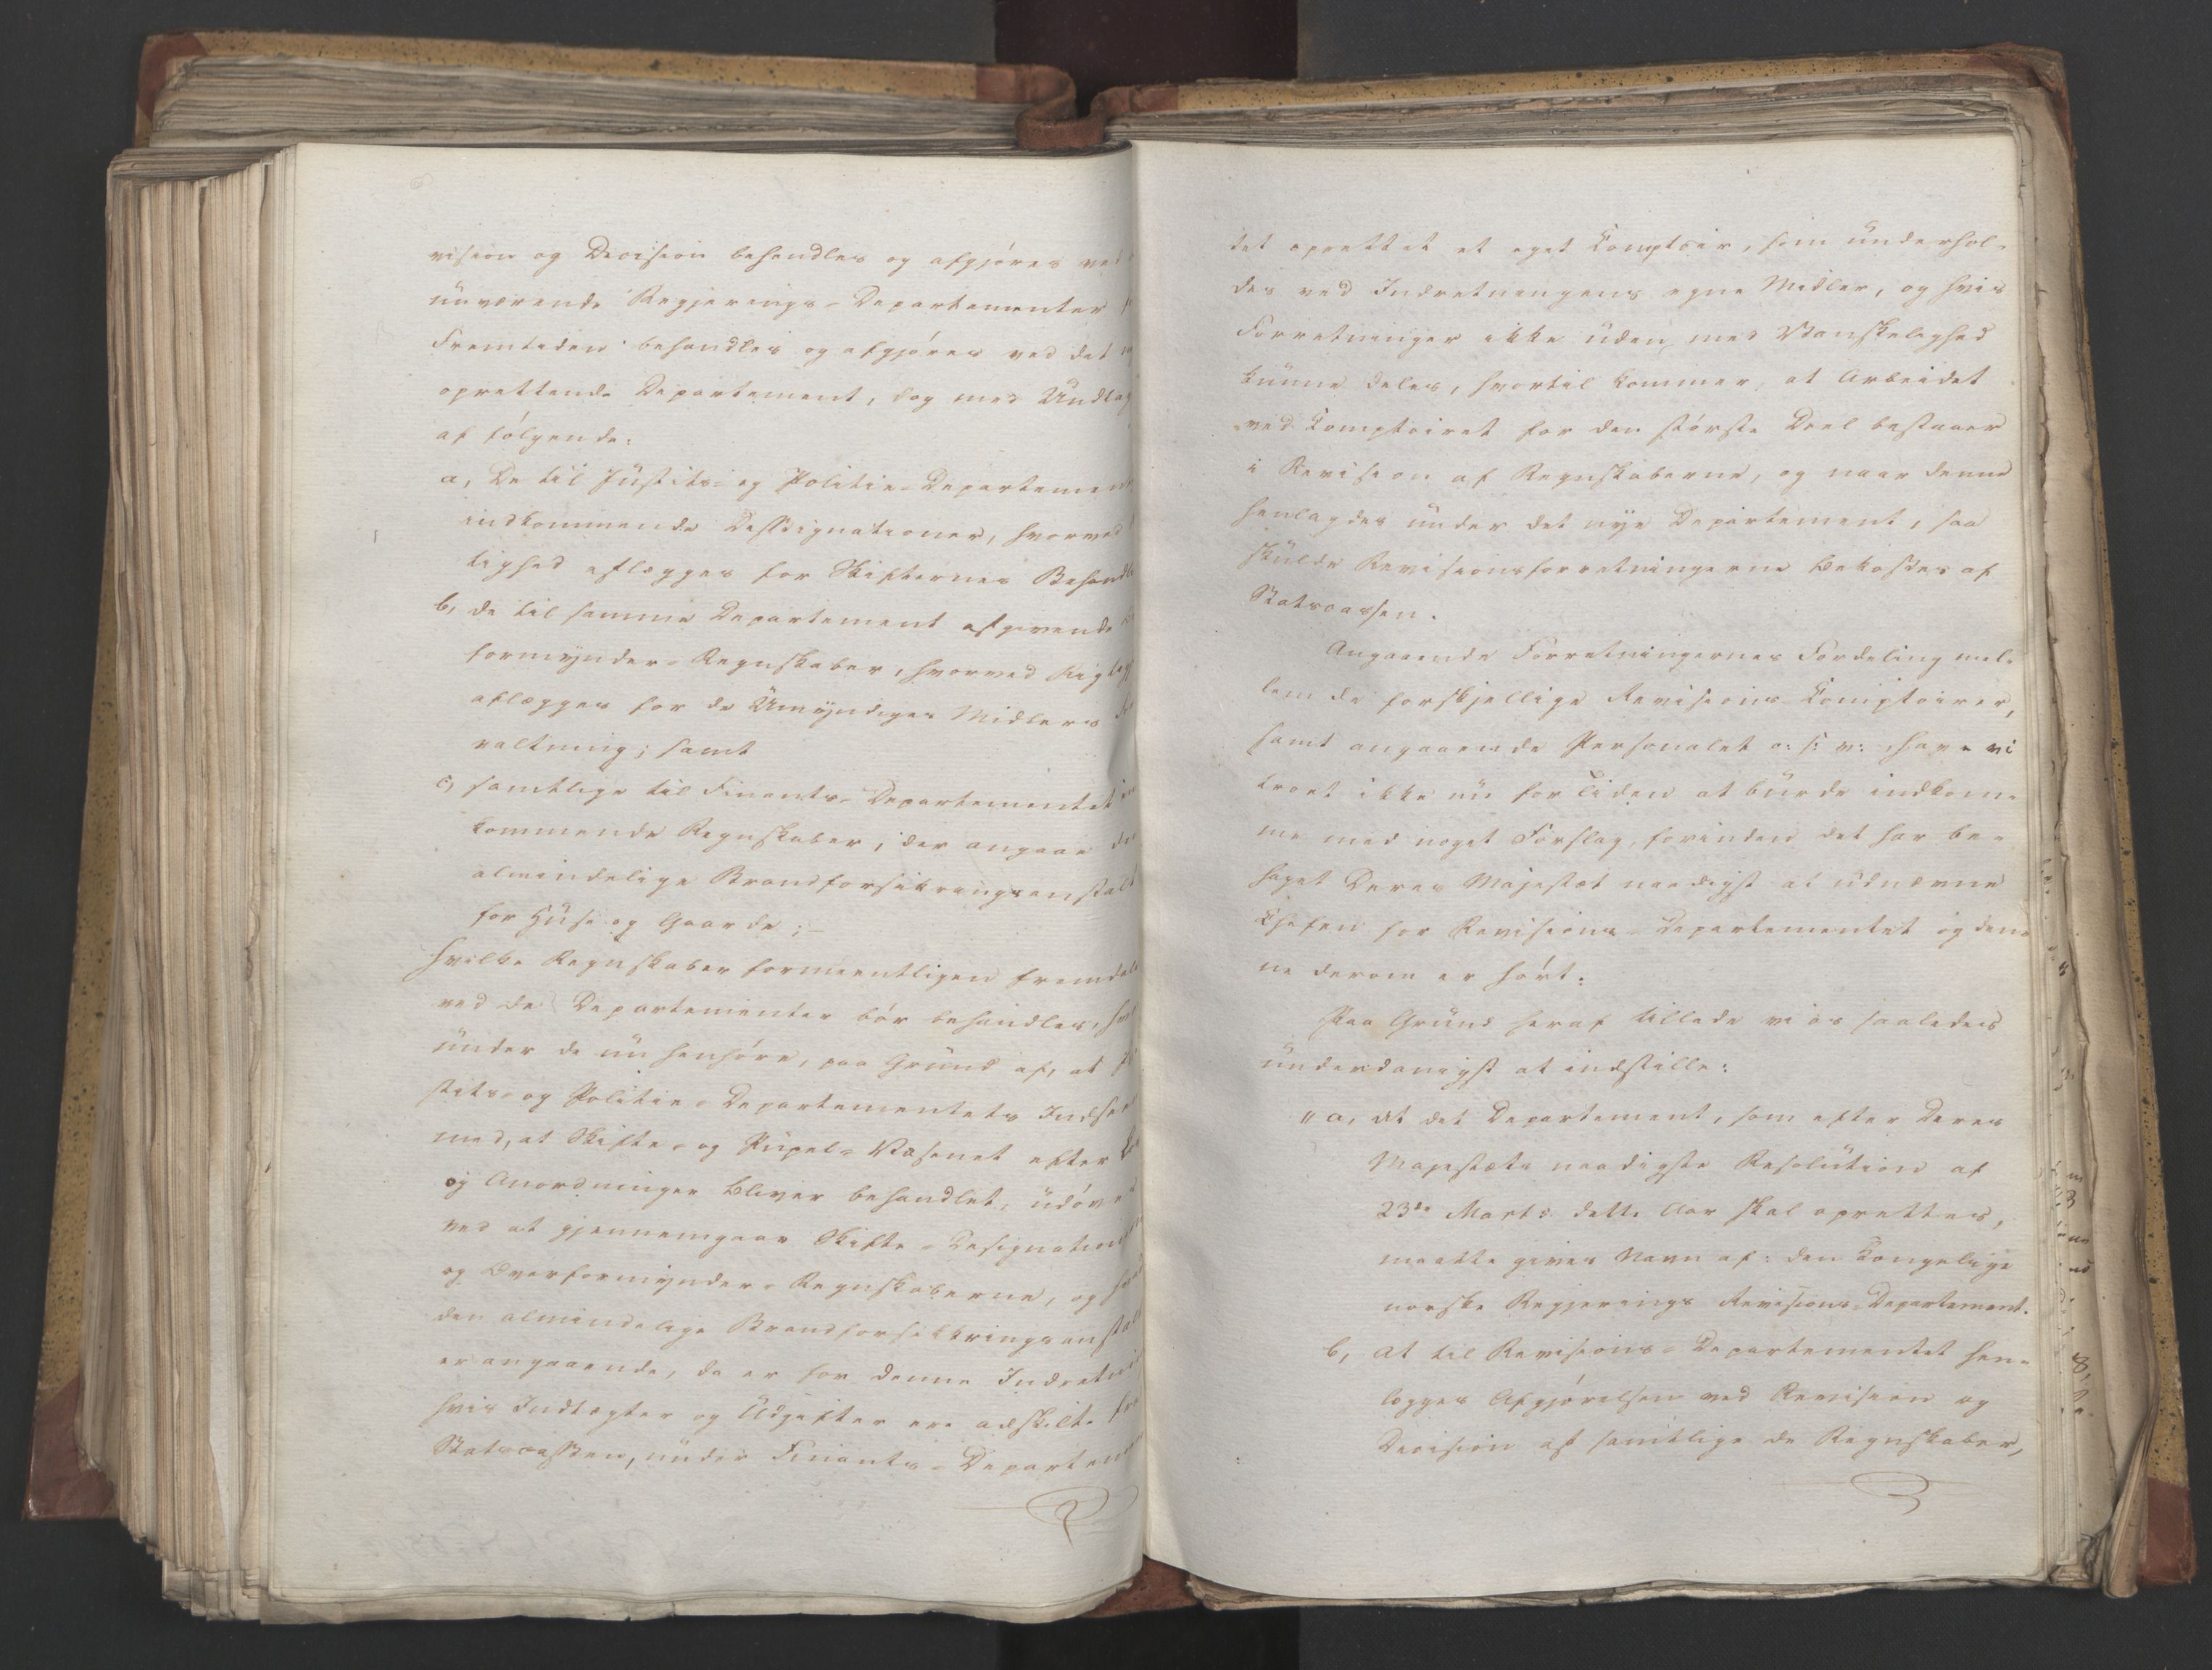 vision og Decision behandles og afgjøres ved
nuværende Regjerings-Departementer
Fremtiden behandles og afgjøres ved det
oprettende Departement, dog med Undtag
af følgende:
a, De til Justits- og Politie-Departemen
indkommende Dessignationer, hvorved
tighed aflægges for Skifternes Behandl
b, de til samme Departement afgivende
formynder-Regnskaber, hvorved Rigtig
aflægges for de Umyndiges Midlers
valtning; samt
c, samtlige til Finants-Departementet
kommende Regnskaber, der angaae
almindelige Brandforsikringsanstalt
for Huse og Gaarde;-
hvilke Regnskaber formeentligen fremdel
ved de Departementer bør behandles,
under de nu henhøre, paa Grund af, at
stits- og Politie-Departementets Indse
med, at Skifte- og Pupel-Væsenet efter
og Anordninger bliver behandlet, udøv
ved at gjennemgaae Skifte-Designation
og Overformynder-Regnskaberne, og
den almindelige Brandforsikkringsanstal
er angaaende, da er for denne Indretni
hvis Indtægter og Udgifter ere adskilte
Statscassen, under Finants-Departemen
tet oprettet et eget Comptoir, som underhol-
des ved Indretningens egne Midler, og hvis
Forretninger ikke uden med Vanskelighed
kunne deles, hvortil kommer, at Arbeidet
ved Comptoiret for den største Deel bestaaer
i Revision af Regnskaberne, og naar denne
henlagdes under det nye Departement, saa
skulde Revisionsforretningerne bekostes af
Statscassen.
Angaaende Forretningernes Fordeling mel-
lem de forskjellige Revisions-Comptoirer,
samt angaaende Personalet o: s: v: have vi
troet ikke nu for Tiden at burde indkom-
me med noget Forslag, forinden det har be-
haget Deres Majestæt naadigst at udnævne
Chefen for Revisions-Departementet og den-
ne derom er hørt:
Paa Grund heraf tillade vi os saaledes
underdanigst at indstille:
"a, At det Departement, som efter Deres
Majestæts naadigste Resolution af
23de Marts dette Aar skal oprettes,
maatte gives Navn af: den Kongelige
norske Regjerings Revisions-Departement.
b, At til Revisions-Departementet hen-
lægges Afgjørelsen ved Revision og
Decision af samtlige de Regnskaber,